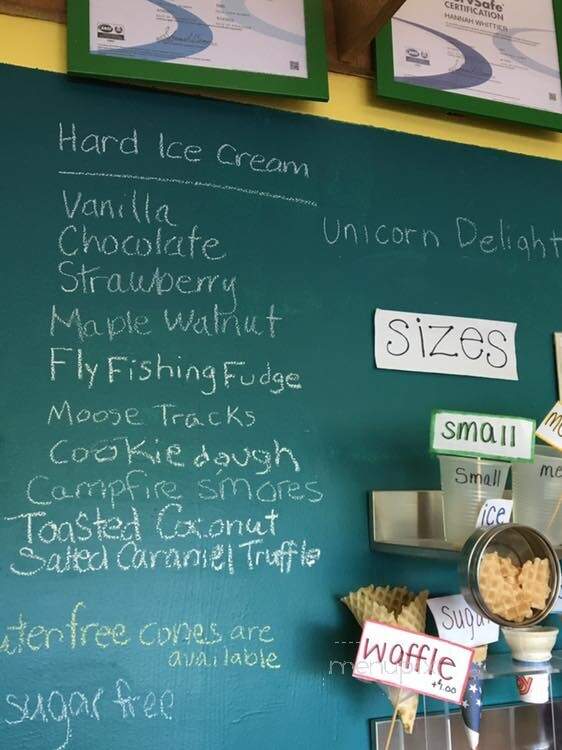 ServSafe
CERTIFICATION
HANNAH WHITTIER
Hard Ice Cream
Vanilla
Chocolate
Strawberry
Maple Walnut
Fly Fishing Fudge
Moose Tracks
Cookie dough
Campfire smores
Toasted Coconut
Salted Caramel Truffle
Unicorn Delight
sizes
small
Small
me
ice
sugar
waffle
+1.00
uten free cones are
available
sugar free
menupix